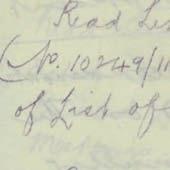 Read Le
(No. 10249/11
of List of